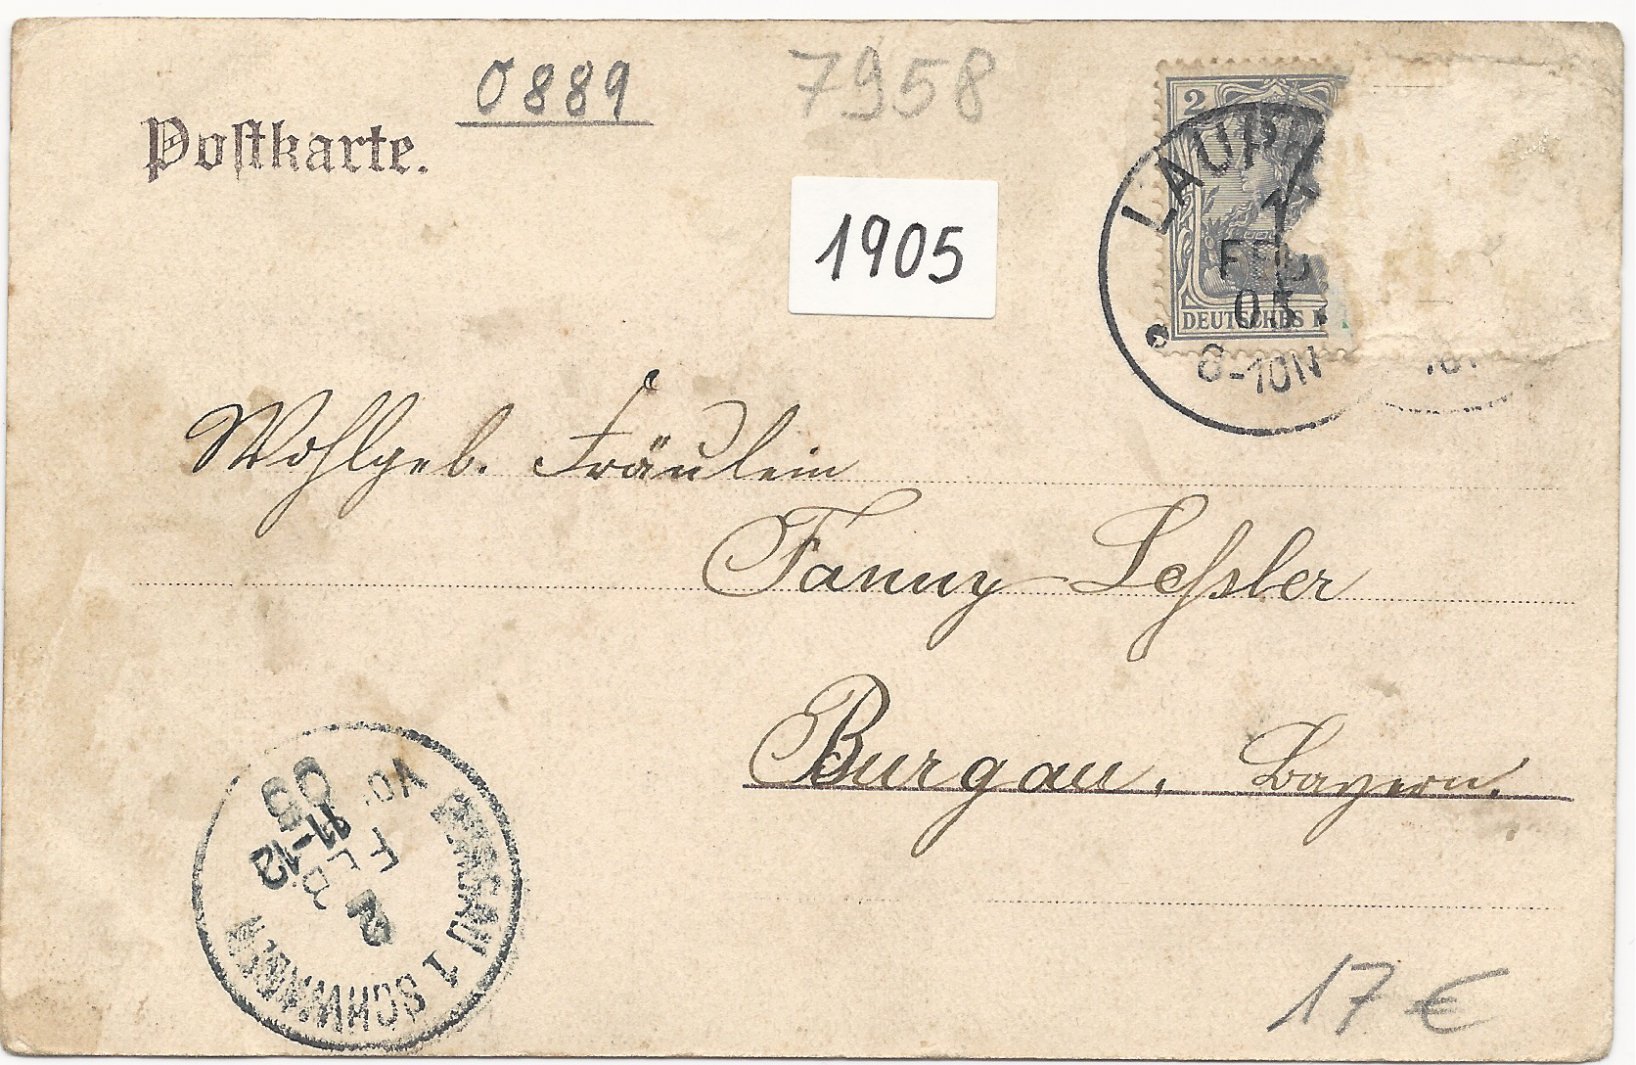 0889
7958
Postkarte.
1905
2
DEUTSCHES
LAUPH
1
FEB
05
8-10N
Wohlgeb. Fräulein
Fanny Leßler
Burgau, Bayern.
BURGAU 1 SCHWABEN
2
FEB
VO. 11-12
05
17 €